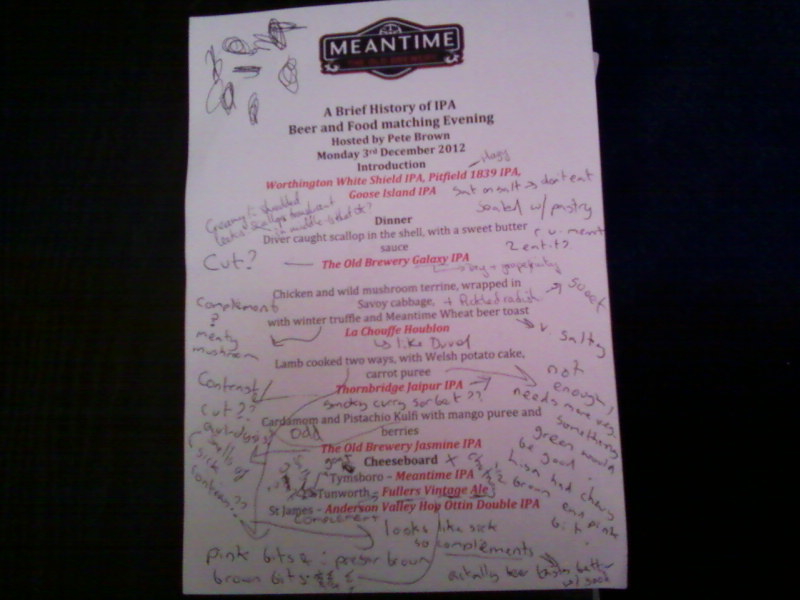 MEANTIME
THE OLD BREWERY
A Brief History of IPA
Beer and Food matching Evening
Hosted by Pete Brown
Monday 3rd December 2012
Introduction
Worthington White Shield IPA, Pitfield 1839 IPA,
Goose Island IPA
sat on salt → don't eat
sealed w/ pastry
Dinner
Diver caught scallop in the shell, with a sweet butter
sauce
Cut?
The Old Brewery Galaxy IPA
Chicken and wild mushroom terrine, wrapped in
Savoy cabbage, + Pickled radish → sweet
with winter truffle and Meantime Wheat beer toast
→ v. salty
Complement
?
meaty
mushroom
La Chouffe Houblon
is like Duvel
Lamb cooked two ways, with Welsh potato cake,
carrot puree
Contrast
cut??
Thornbridge Jaipur IPA
smokey curry sorbet??
not
enough!
needs more veg.
something
green would
be good.
Lisa had chewy
brown end pink
bit.
Cardamom and Pistachio Kulfi with mango puree and
berries
odd
The Old Brewery Jasmine IPA
smells of
sick
Cheeseboard
Tymsboro – Meantime IPA
Tunworth – Fullers Vintage Ale
St James – Anderson Valley Hop Ottin Double IPA
complement
looks like sick
so complements
pink bits : prefer brown
brown bits
actually beer tastes better